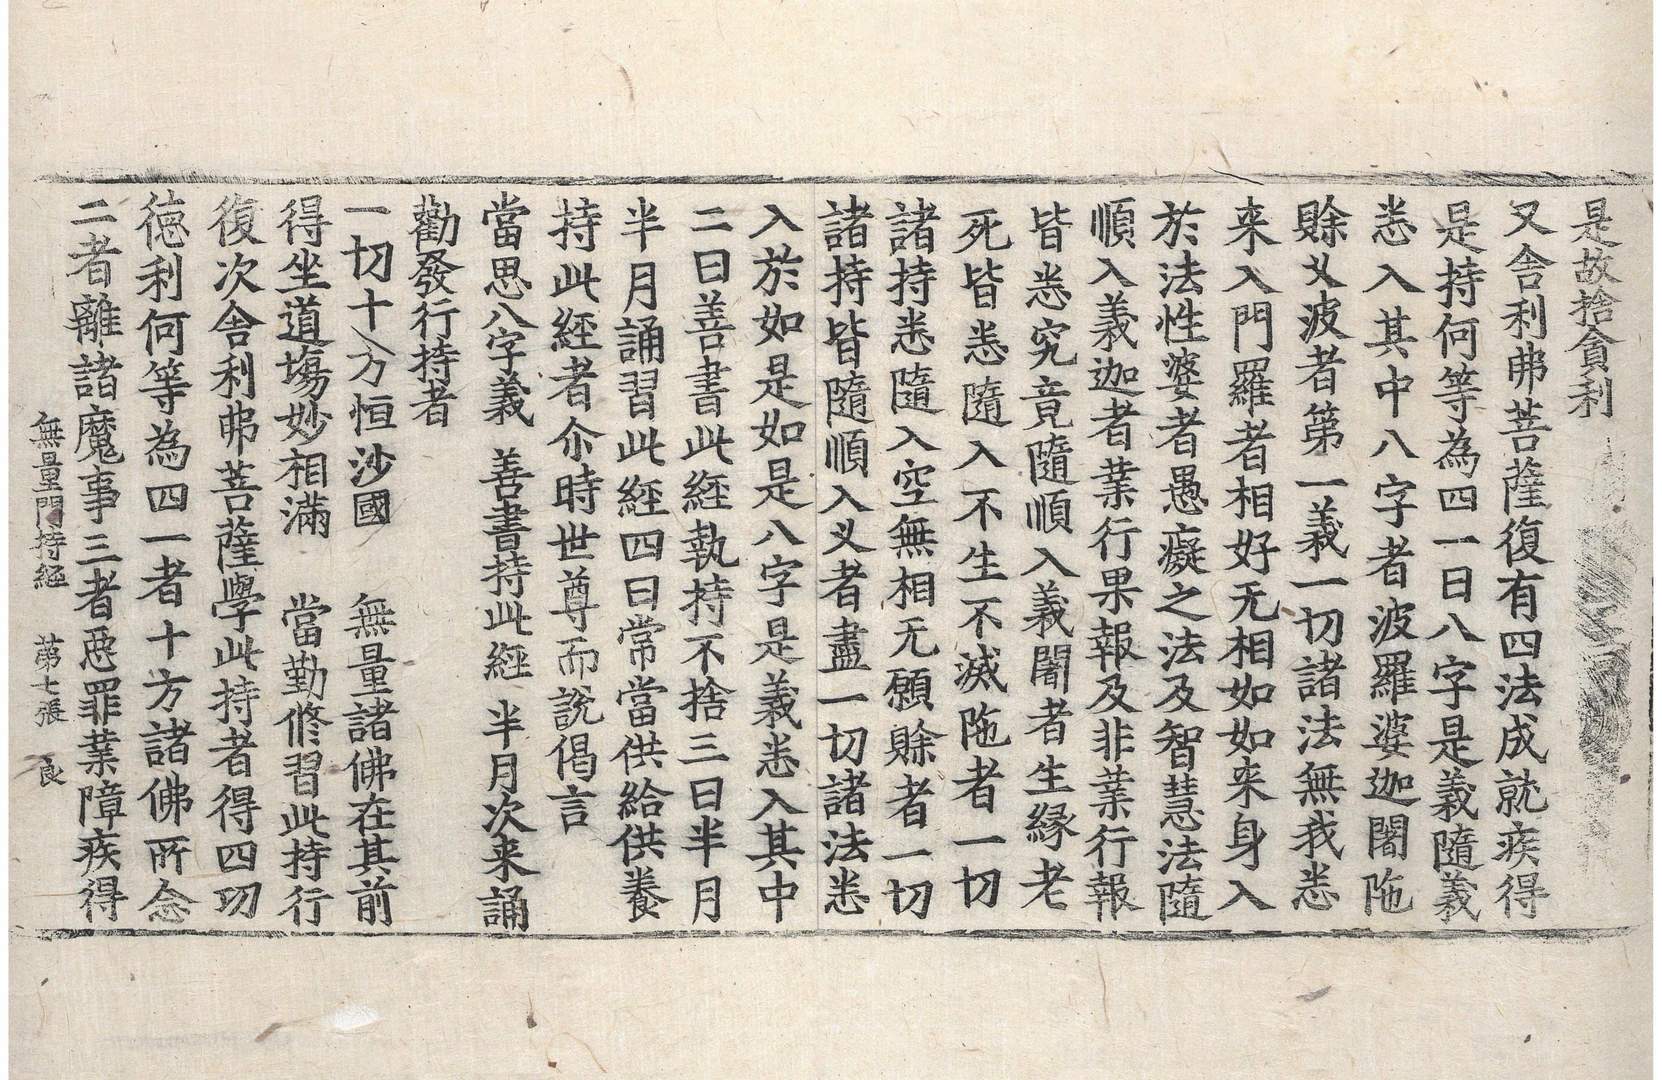 是故捨貪利
又舍利弗菩薩復有四法成就疾得
是持何等為四一曰八字是義隨義
悉入其中八字者波羅婆迦闍陁
賖乂波者第一義一切諸法無我悉
来入門羅者相好无相如如来身入
於法性婆者愚癡之法及智慧法隨
順入義迦者業行果報及非業行報
皆悉究竟隨順入義闍者生緣老
死皆悉隨入不生不滅陁者一切
諸持悉隨入空無相无願賖者一切
諸持皆隨順入乂者盡一切諸法悉
入於如是如是八字是義悉入其中
二曰善書此經執持不捨三曰半月
半月誦習此經四曰常當供給供養
持此經者尒時世尊而說偈言
當思八字義 善書持此經 半月次来誦
勸發行持者
一切十方恒沙國 無量諸佛在其前
得坐道塲妙相滿 當勤修習此持行
復次舍利弗菩薩學此持者得四功
德利何等為四一者十方諸佛所念
二者離諸魔事三者惡罪業障疾得
無量門持經 第七張 良